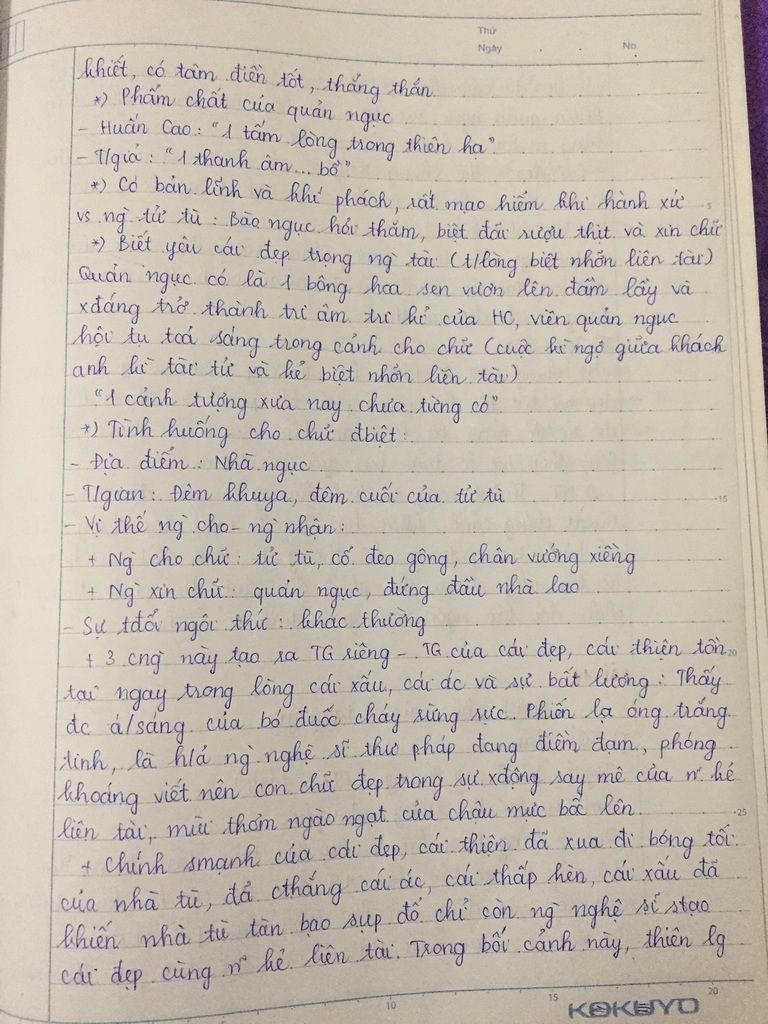 Thứ
Ngày . . No.
khiết, có tâm điền tốt, thẳng thắn
*) Phẩm chất của quản ngục
- Huấn Cao: "1 tấm lòng trong thiên hạ"
- T/giả: "1 thanh âm... bồ"
*) Có bản lĩnh và khí phách, rất mạo hiểm khi hành xử
vs ng` tử tù: Bảo ngục hỏi thăm, biệt đãi rượu thịt và xin chữ
*) Biết yêu cái đẹp trọng ng` tài (t/lòng biệt nhỡn liên tài)
Quản ngục có là 1 bông hoa sen vươn lên đầm lầy và
xđáng trở thành tri âm tri kỉ của HC, viên quản ngục
hội tụ toả sáng trong cảnh cho chữ (cuộc kì ngộ giữa khách
anh kì tài tử và kẻ biệt nhỡn liên tài)
"1 cảnh tượng xưa nay chưa từng có"
*) Tình huống cho chữ đbiệt:
- Địa điểm: Nhà ngục
- T/gian: Đêm khuya, đêm cuối của tử tù
- Vị thế ng` cho - ng` nhận:
+ Ng` cho chữ: tử tù, cổ đeo gông, chân vướng xiềng
+ Ng` xin chữ: quản ngục, đứng đầu nhà lao
- Sự tđổi ngôi thứ: khác thường
+ 3 cng` này tạo ra TG riêng - TG của cái đẹp, cái thiện tồn
tại ngay trong lòng cái xấu, cái ác và sự bất lương: Thấy
đc á/sáng của bó đuốc cháy rừng rực. Phiến lạ óng trắng
tinh, là h/ả ng` nghệ sĩ thư pháp đang điềm đạm, phóng
khoáng viết nên con chữ đẹp trong sự xđộng say mê của n~ kẻ
liên tài, mùi thơm ngào ngạt của chậu mực bốc lên.
+ Chính smạnh của cái đẹp, cái thiện đã xua đi bóng tối
của nhà tù, đã cthắng cái ác, cái thấp hèn, cái xấu đã
khiến nhà tù tàn bạo sụp đổ chỉ còn ng` nghệ sĩ stạo
cái đẹp cùng n~ kẻ liên tài. Trong bối cảnh này, thiên lg
5
15
20
25
10 15 20
KOKUYO